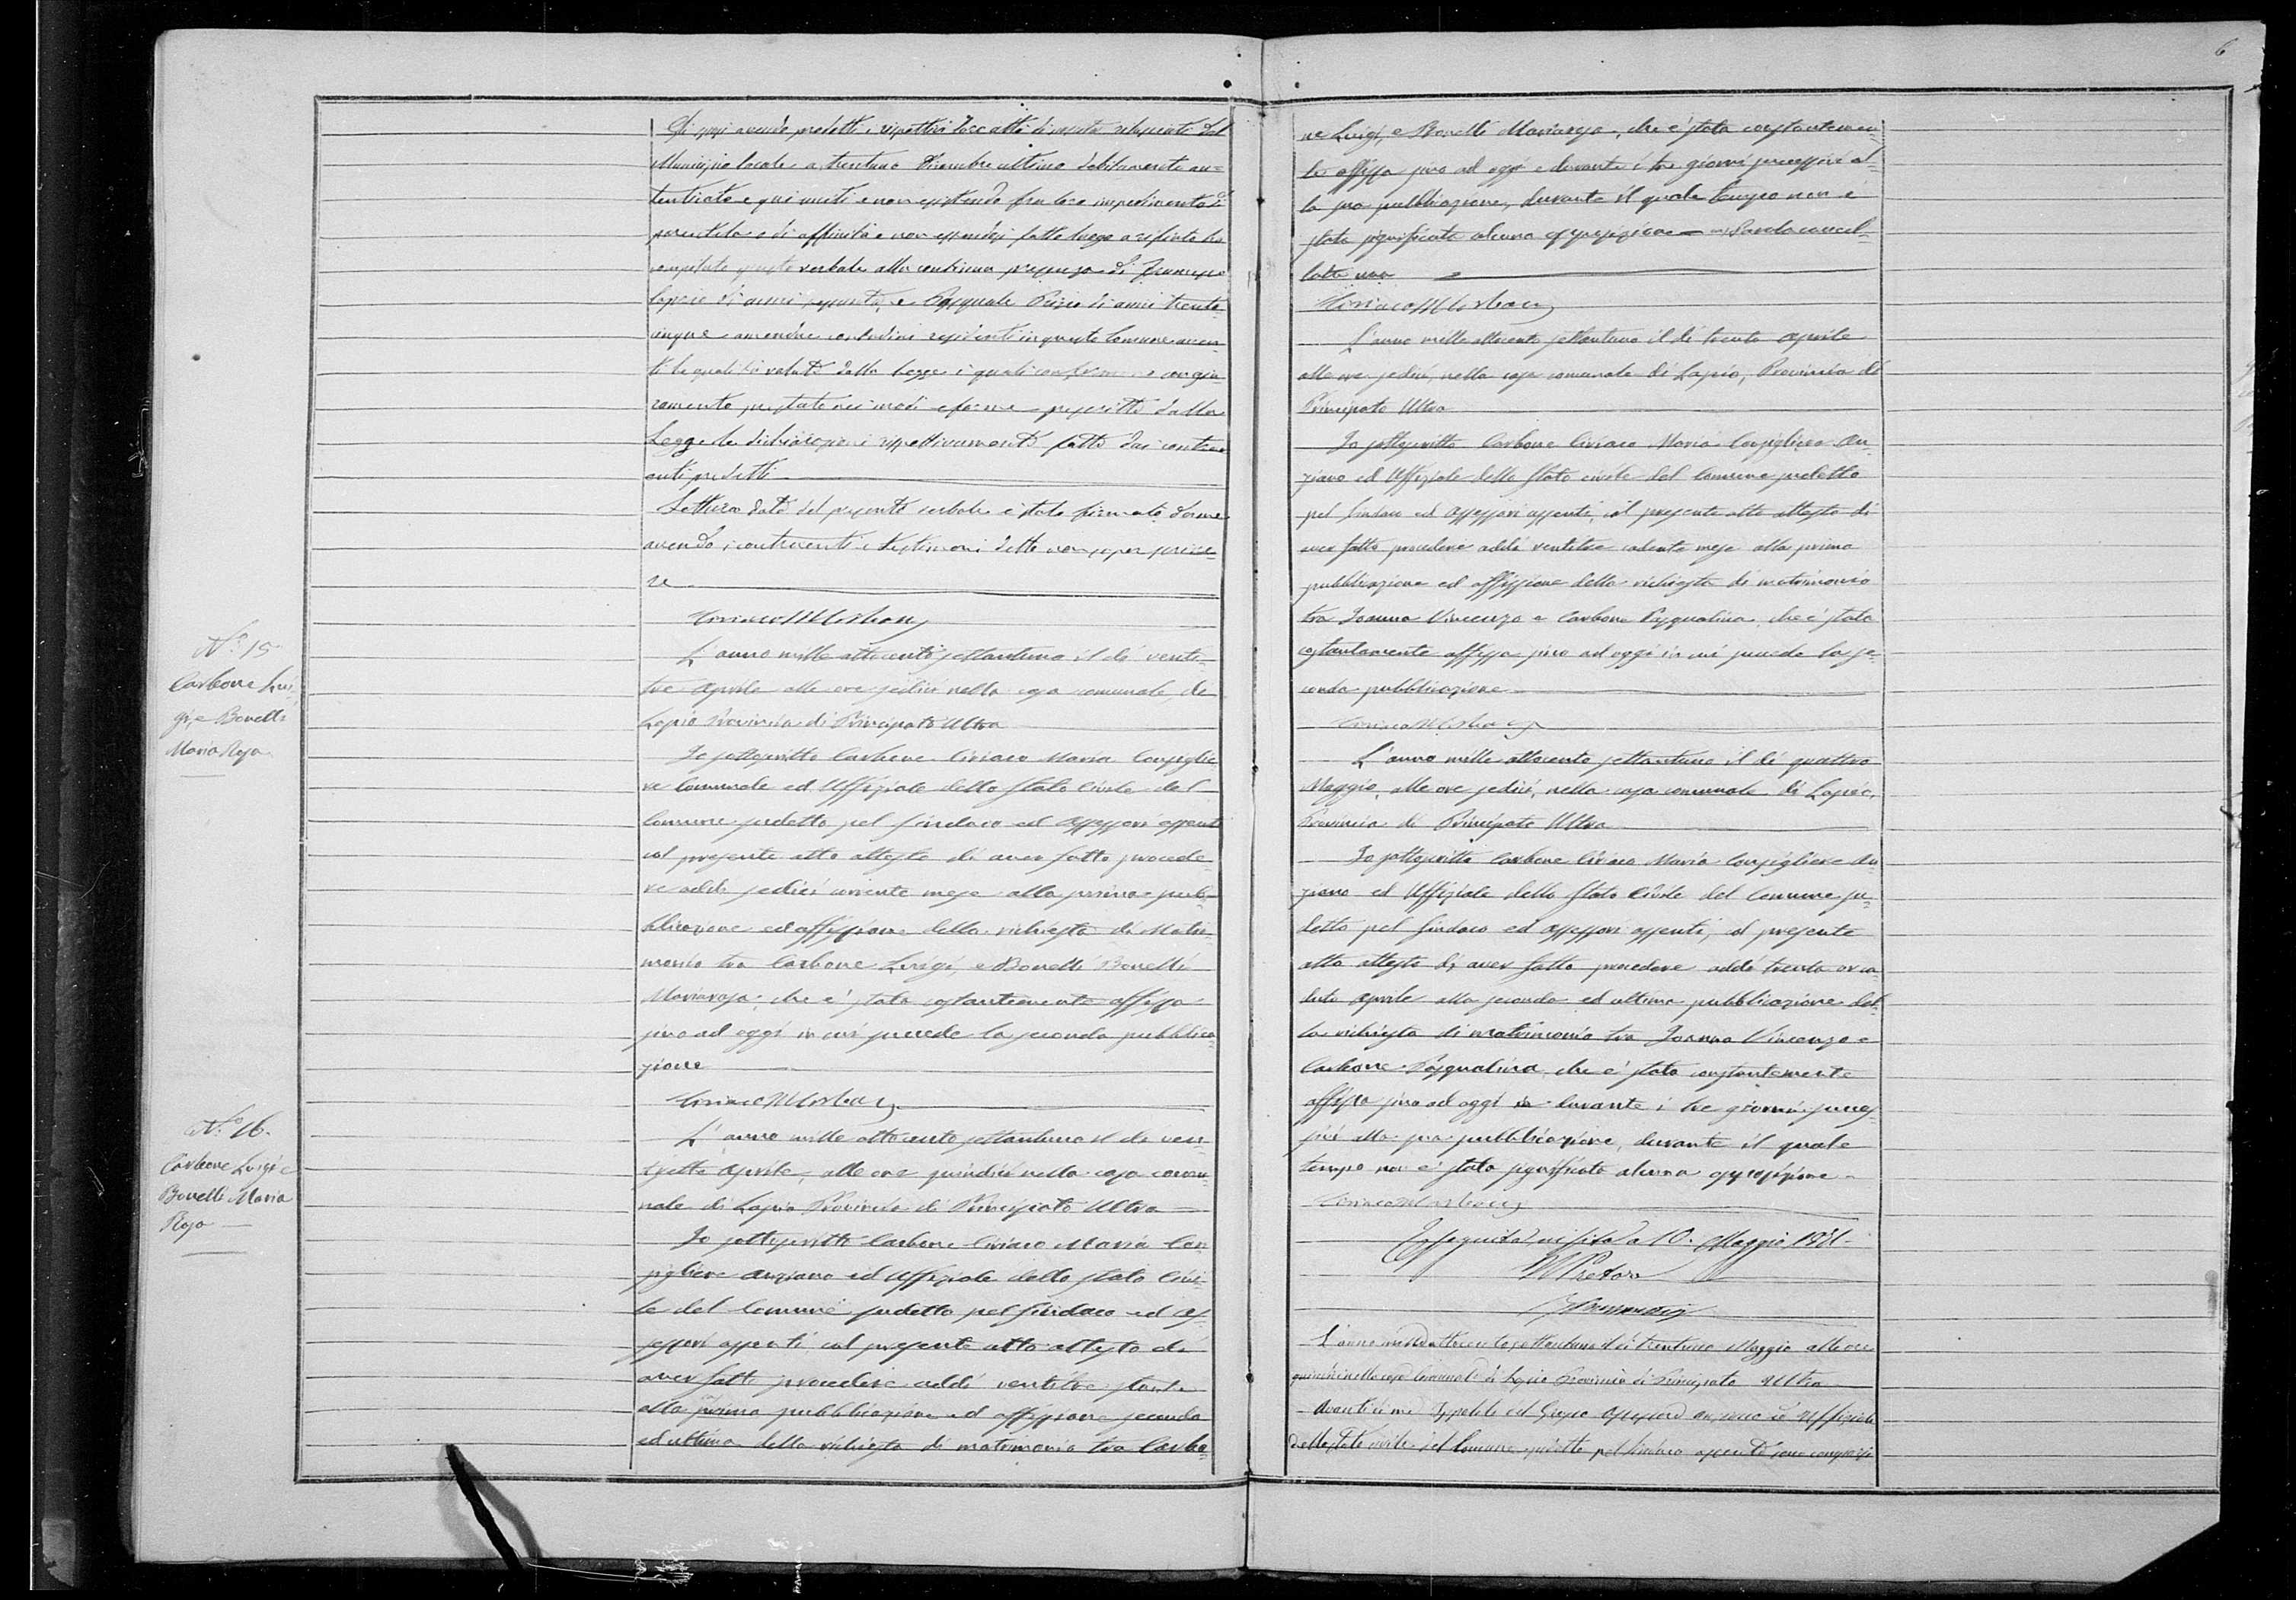 6
Gli sposi avendo prodotti i rispettivi loro atti di nascita rilasciati dal
Municipio locale a trentuno Dicembre ultimo debitamente au=
tenticato e qui uniti e non esistendo fra loro impedimento di
parentela o di affinità e non essendosi fatto luogo a rifiuto ho
compilato questo verbale alla continua presenza di Francesco
Lapio di anni sessanta, e Pasquale Pizio di anni trenta=
cinque amendue contadini residenti in questo Comune aven=
ti le qualità volute dalla legge i quali confermano con giu=
ramento prestato nei modi e forme prescritte dalla
Legge le dichiarazioni rispettivamente fatte dai contra=
enti predetti
Lettura data del presente verbale è stato firmato da me
avendo i contraenti e testimoni detto non saper scrive=
re
Ciriaco M Carbone
N.° 15
Carbone Lui=
gi, e Bonelli
Maria Rosa
L'anno mille ottocento settantuno il dì venti=
tre Aprile alle ore sedici nella casa comunale di
Lapio Provincia di Principato Ultra
Io sottoscritto Carbone Ciriaco Maria Consiglie
re Comunale ed Uffiziale dello Stato Civile del
Comune sudetto pel Sindaco ed Assessori assenti
col presente atto attesto di aver fatto procede=
re addì sedici corrente mese alla prima pub=
blicazione ed affissione della richiesta di Matri=
monio tra Carbone Luigi, e Bonelli Bonelli
Mariarosa, che è stata costantemente affissa
sino ad oggi in cui succede la seconda pubblica=
zione
Ciriaco M Carbone
N.° 16.
Carbone Luigi e
Bonelli Maria
Rosa
L'anno mille ottocento settantuno il dì ven=
tisette Aprile, alle ore quindici nella casa comu=
nale di Lapio Provincia di Principato Ultra
Io sottoscritto Carbone Ciriaco Maria Con=
sigliere anziano ed Uffiziale dello Stato Civi=
le del Comune sudetto pel Sindaco ed As=
sessori assenti col presente atto attesto di
aver fatto procedere addì ventitre stante
alla prima pubblicazione ed affissione seconda
ed ultima della richiesta di matrimonio tra Carbo=
ne Luigi, e Bonelli Mariarosa, che è stata costantemen=
te affissa sino ad oggi e durante i tre giorni successivi al=
la sua pubblicazione, durante il quale tempo non è
stata significata alcuna opposizione = Parola cancel=
lata una
Ciriaco M Carbone
L'anno mille ottocento settantuno il dì trenta Aprile
alle ore sedici, nella casa comunale di Lapio, Provincia di
Principato Ultra
Io sottoscritto Carbone Ciriaco Maria Consigliere An=
ziano ed Uffiziale dello Stato civile del Comune sudetto
pel Sindaco ed Assessori assenti, col presente atto attesto di
aver fatto procedere addì ventitre cadente mese alla prima
pubblicazione ed affissione della richiesta di matrimonio
tra Joanna Vincenzo e Carbone Pasqualina, che è stata
costantemente affissa sino ad oggi in cui succede la se=
conda pubblicazione
Ciriaco M Carbone
L'anno mille ottocento settantuno il dì quattro
Maggio, alle ore sedici, nella casa comunale di Lapio,
Provincia di Principato Ultra
Io sottoscritto Carbone Ciriaco Maria Consigliere An
ziano ed Uffiziale dello Stato Civile del Comune su=
detto pel Sindaco ed Assessori assenti, col presente
atto attesto di aver fatto procedere addì trenta or ca
duto Aprile alla seconda ed ultima pubblicazione del=
la richiesta di matrimonio tra Joanna Vincenzo e
Carbone Pasqualina, che è stata costantemente
affissa sino ad oggi e durante i tre giorni succes=
sivi alla sua pubblicazione, durante il quale
tempo non è stata significata alcuna opposizione
Ciriaco M Carbone
Eseguita la visita a 10. Maggio 1871
Il Pretore
L'anno mille ottocento settantuno il dì trentuno Maggio alle ore
quindici nella casa Comunale di Lapio Provincia di Principato Ultra
Avanti di me Ippolito del Grosso Assessore anziano ed Uffiziale
dello Stato civile del Comune sudetto pel Sindaco assente sono comparsi